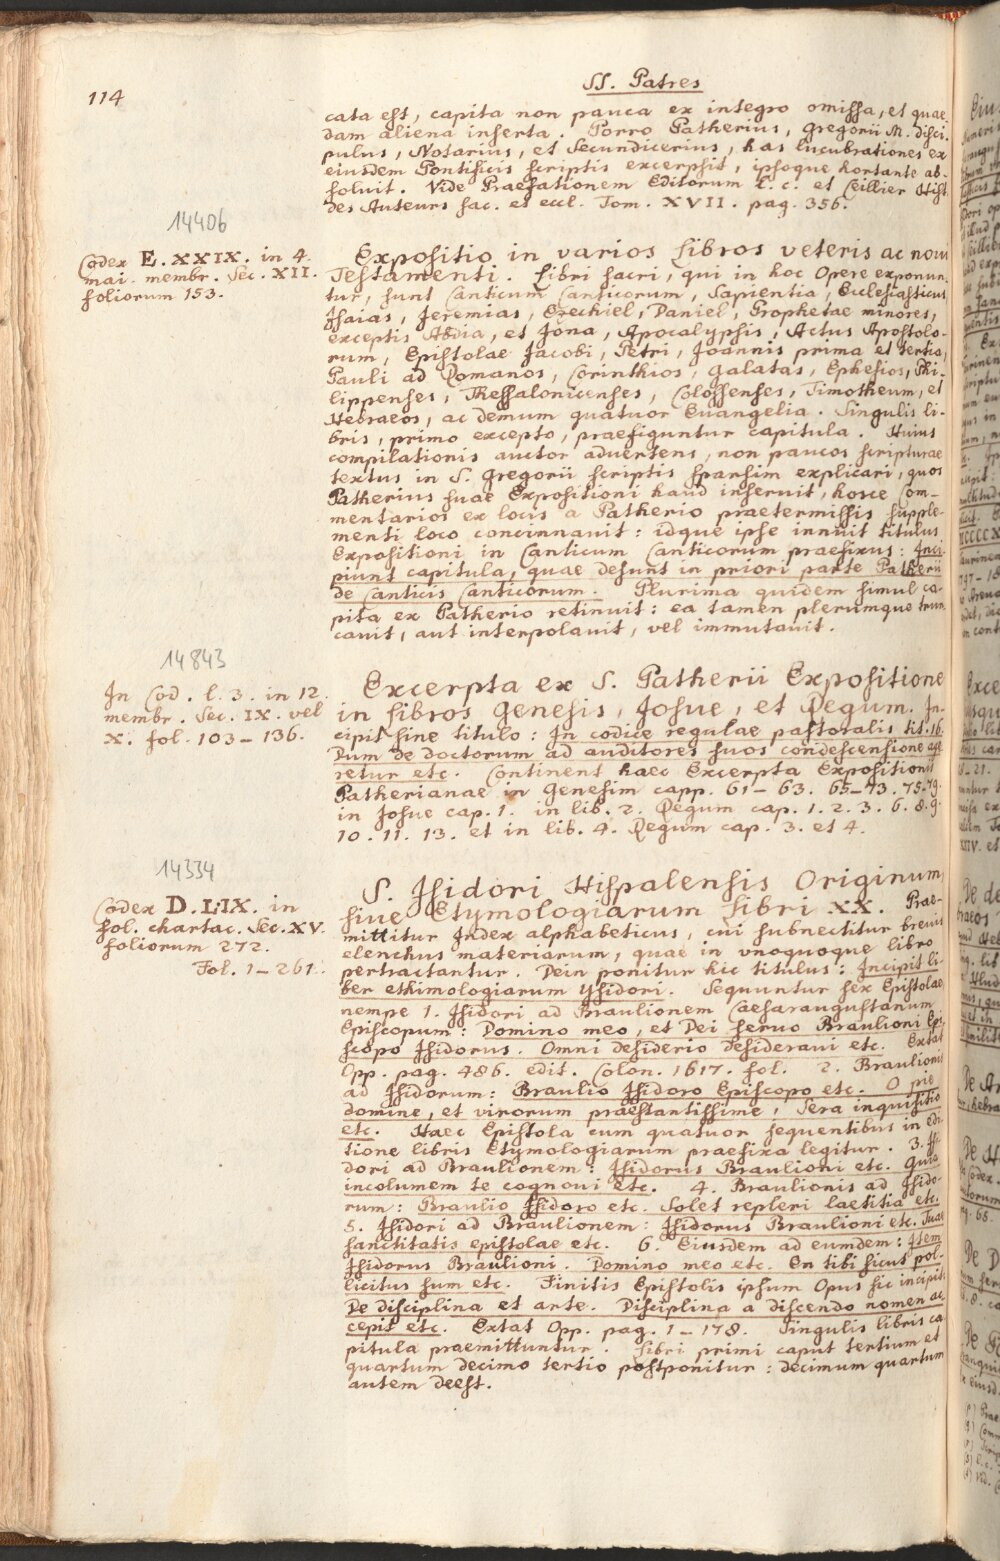 114
SS. Patres
cata est, capita non pauca ex integro omissa, et quae
dam aliena inserta. Porro Patherius, Gregorii M. disci
pulus, Notarius, et Secundicerius, has lucubrationes ex
eiusdem Pontificis scriptis excerpsit, ipsoque hortante ab-
soluit. Vide Praefationem Editorum l. c. et Ceillier Hist.
des Auteurs sac. et eccl. Tom. XVII. pag. 356.
14406
Codex E. XXIX. in 4.
mai. membr. Sec. XII.
foliorum 153.
Expositio in varios libros veteris ac noui
Testamenti. Libri sacri, qui in hoc Opere exponun
tur, sunt Canticum Canticorum, Sapientia, Ecclesiasticus
Isaias, Jeremias, Ezechiel, Daniel, Prophetae minores,
exceptis Abdia, et Jona, Apocalypsis, Actus Apostolo-
rum, Epistolae Jacobi, Petri, Joannis prima et tertia,
Pauli ad Romanos, Corinthios, Galatas, Ephesios, Phi-
lippenses, Thessalonicenses, Colossenses, Timotheum, et
Hebraeos, ac demum quatuor Euangelia. Singulis li-
bris, primo excepto, praefiguntur capitula. Huius
compilationis auctor aduertens, non paucos scripturae
textus in S. Gregorii scriptis sparsim explicari, quos
Patherius suae Expositioni haud inseruit, hosce Com-
mentarios ex locis a Patherio praetermissis supple-
menti loco concinnauit: idque ipse innuit titulus
Expositioni in Canticum Canticorum praefixus: Inci
piunt capitula, quae desunt in priori parte Patherii
de Canticis Canticorum. Plurima quidem simul ca-
pita ex Patherio retinuit: ea tamen plerumque trun
cauit, aut interpolauit, vel immutauit.
14843
In Cod. l. 3. in 12.
membr. Sec. IX. vel
X. fol. 103-136.
Excerpta ex S. Patherii Expositione
in libros Genesis, Josue, et Regum. In-
cipit sine titulo: In codice regulae pastoralis tit. 16.
Dum de doctorum ad auditores suos condescensione age
retur etc. Continent haec Excerpta Expositionis
Patherianae in Genesim capp. 61-63. 65-73. 75-79.
in Josue cap. 1. in lib. 2. Regum cap. 1. 2. 3. 6. 8. 9.
10. 11. 13. et in lib. 4. Regum cap. 3. et 4.
14334
Codex D. LIX. in
fol. chartac. Sec. XV.
foliorum 272.
Fol. 1-261.
S. Isidori Hispalensis Originum
siue Etymologiarum libri XX. Prae-
mittitur Index alphabeticus, cui subnectitur breuis
elenchus materiarum, quae in vnoquoque libro
pertractantur. Dein ponitur hic titulus: Incipit li-
ber ethimologiarum Ysidori. Sequuntur sex Epistolae
nempe 1. Isidori ad Braulionem Caesaraugustanum
Episcopum: Domino meo, et Dei seruo Braulioni Epi
scopo Isidorus. Omni desiderio desideraui etc. Extat
Opp. pag. 486. edit. Colon. 1617. fol. 2. Braulionis
ad Isidorum: Braulio Isidoro Episcopo etc. O pie
domine, et virorum praestantissime, Sera inquisitio
etc. Haec Epistola cum quatuor sequentibus in edi
tione libris Etymologiarum praefixa legitur. 3. Isi-
dori ad Braulionem: Isidorus Braulioni etc. Quia
incolumem te cognoui etc. 4. Braulionis ad Isido-
rum: Braulio Isidoro etc. Solet repleri laetitia etc.
5. Isidori ad Braulionem: Isidorus Braulioni etc. Tuae
sanctitatis epistolae etc. 6. Eiusdem ad eumdem: Item
Isidorus Braulioni. Domino meo etc. En tibi sicut pol-
licitus sum etc. Finitis Epistolis ipsum Opus sic incipit:
De disciplina et arte. Disciplina a discendo nomen ac
cepit etc. Extat Opp. pag. 1-178. Singulis libris ca
pitula praemittuntur. Libri primi caput tertium et
quartum decimo tertio postponitur: decimum quartum
autem deest.